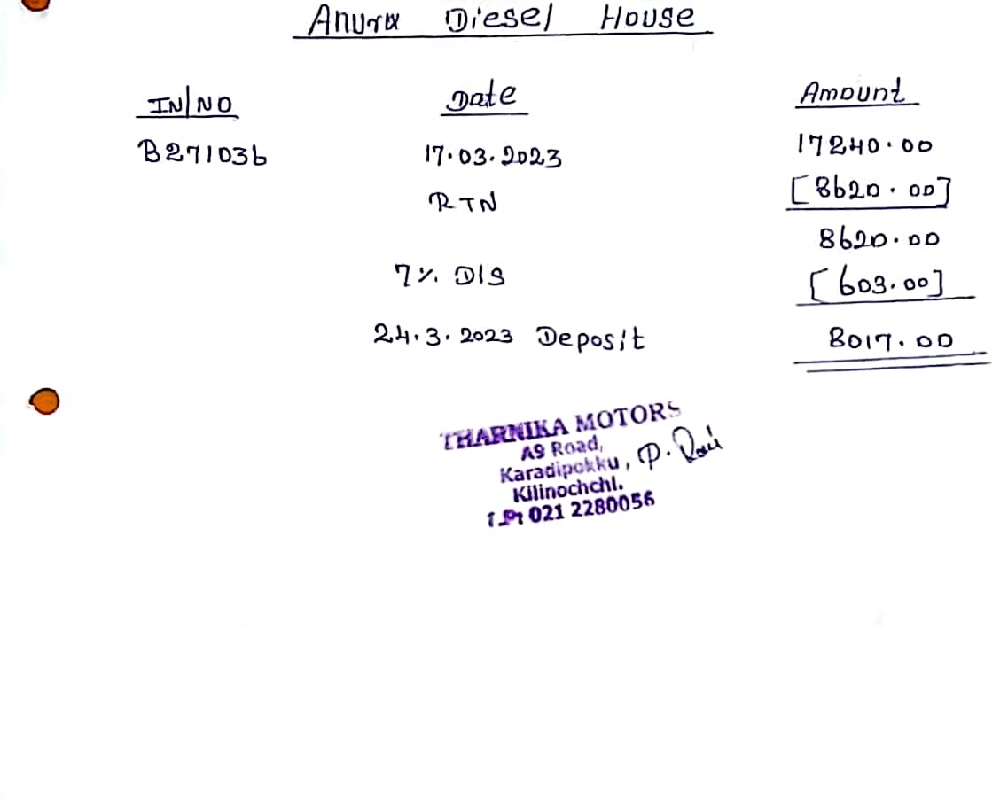 Anura Diesel House
IN/NO Date Amount
B271036 17.03.2023 17240.00
RTN [8620.00]
8620.00
7% DIS [603.00]
24.3.2023 Deposit 8017.00
THARNIKA MOTORS
A9 Road,
Karadipokku,
Kilinochchi.
T.P: 021 2280056